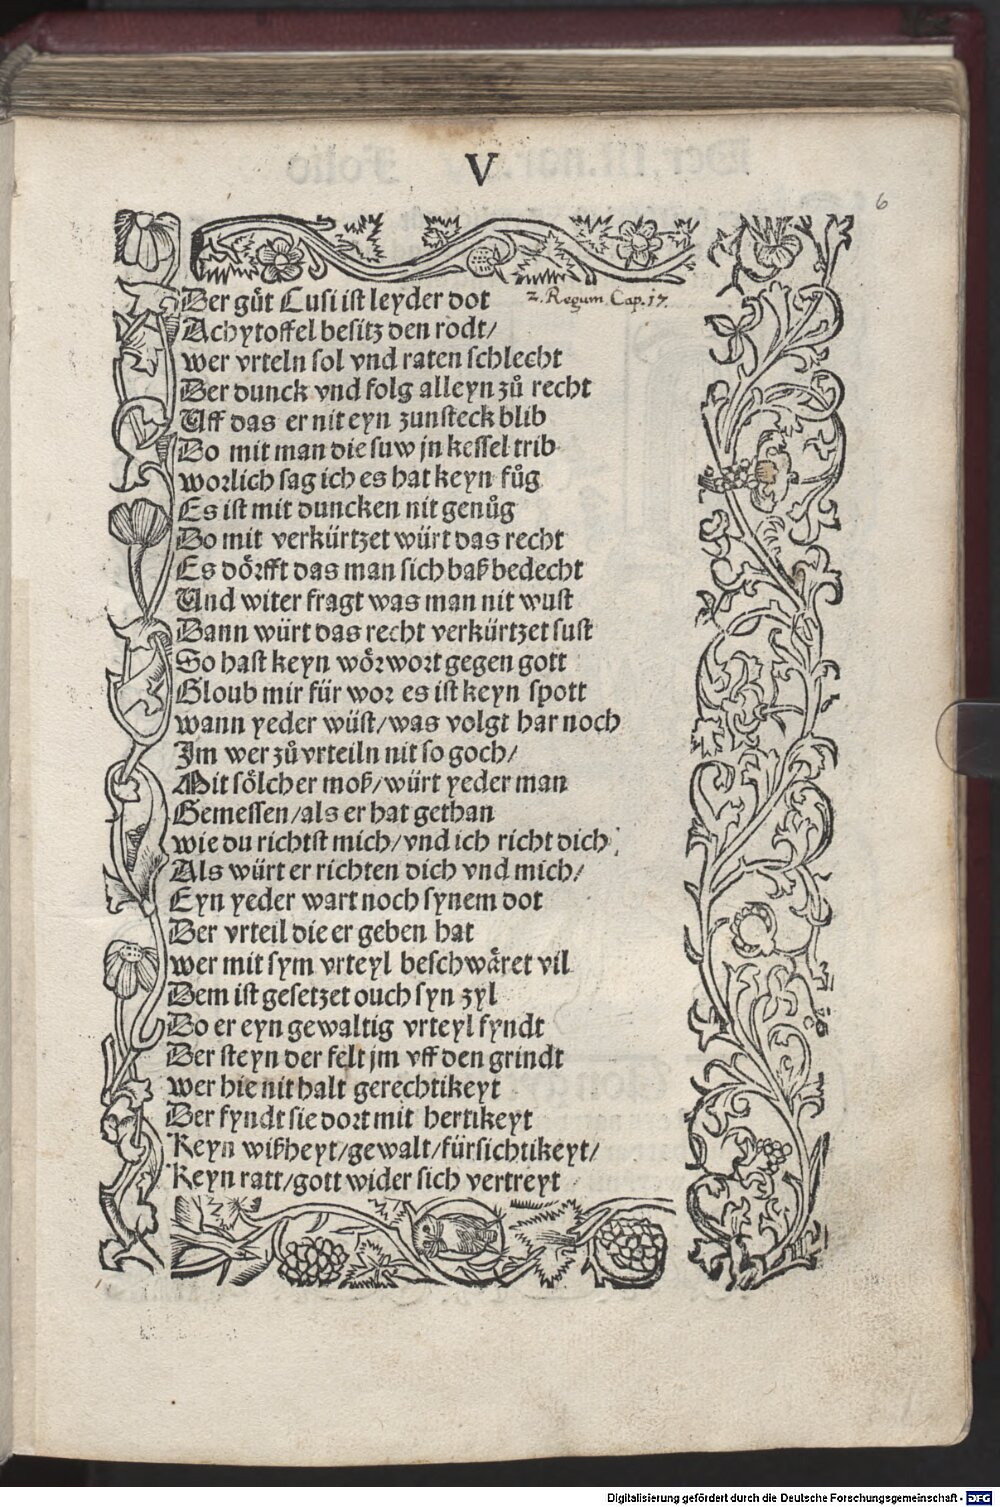 V
6
Der gůt Cusi ist leyder dot
2. Regum. Cap. 17.
Achytoffel besitz den rodt/
wer vrteln sol vnd raten schlecht
Der dunck vnd folg alleyn zů recht
Uff das er nit eyn zunsteck blib
Do mit man die suw jn kessel trib
worlich sag ich es hat keyn fůg
Es ist mit duncken nit genůg
Do mit verkürtzet würt das recht
Es dörfft das man sich baß bedecht
Und witer fragt was man nit wust
Dann würt das recht verkürtzet sust
So hast keyn wörwort gegen gott
Gloub mir für wor es ist keyn spott
wann yeder wüst/was volgt har noch
Im wer zů vrteiln nit so goch/
Mit sölcher moß/würt yeder man
Gemessen/als er hat gethan
wie du richtst mich/vnd ich richt dich
Als würt er richten dich vnd mich/
Eyn yeder wart noch synem dot
Der vrteil die er geben hat
wer mit sym vrteyl beschwäret vil
Dem ist gesetzet ouch syn zyl
Do er eyn gewaltig vrteyl fyndt
Der steyn der felt jm vff den grindt
wer hie nit halt gerechtikeyt
Der fyndt sie dort mit hertikeyt
Keyn wißheyt/gewalt/fürsichtikeyt/
Keyn ratt/gott wider sich vertreyt
Digitalisierung gefördert durch die Deutsche Forschungsgemeinschaft - DFG